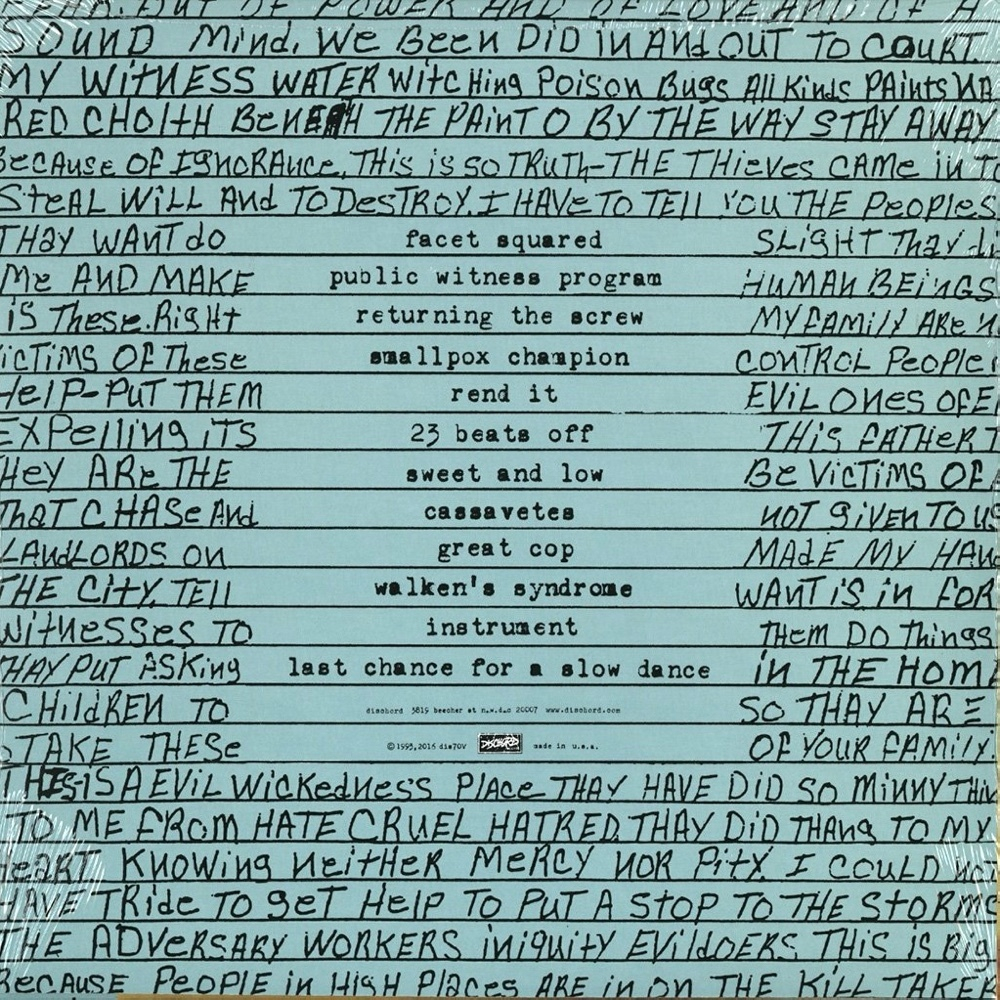 FEAR. OUT OF POWER AND OF LOVE AND OF A
SOUND MIND. WE BEEN DID IN ANd OUT TO COURT.
MY WITNESS WATER WITCHING POISON BUGS All KINdS PAINTS
RED CHOITH BENEATH THE PAINT O BY THE WAY STAY AWAY
BECAUSE OF IGNORANCE. THIS iS SO TRUTH-THE THIEVES CAME iN TO
STEAL WILL ANd TO DESTROY. I HAVE TO TELL YOU THE PEOPLES
THAY WANT do facet squared SLIGHT THAY
ME AND MAKE public witness program HUMAN BEINGS
IS THESE. RIGHT returning the screw MY FAMILY ARE
VICTIMS OF THESE smallpox champion CONTROL PEOPLE
HELP-PUT THEM rend it EVIL ONES OF
EXPELLING ITS 23 beats off THIS FATHER
THEY ARE THE sweet and low BE VICTIMS OF
THAT CHASE ANd cassavetes NOT GIVEN TO US
LANdLORDS ON great cop MADE MY
THE CITY. TELL walken's syndrome WANT IS iN FOR
WITNESSES TO instrument THEM DO THINGS
THAY PUT ASKING last chance for a slow dance iN THE HOME
CHILdREN TO dischord 3819 beecher st n.w.d.c 20007 www.dischord.com SO THAY ARE
TAKE THESE ©1993,2016 dis70V DISCHORD made in u.s.a. OF YOUR FAMILY.
THIS-IS A EVIL WICKEDNESS PLACE THAY HAVE DID SO MINNY
TO ME FROM HATE CRUEL HATRED. THAY DID THANG TO MY
HEART KNOWING NEITHER MERCY NOR PITY. I COULD NOT
HAVE TRIdE TO GET HELP TO PUT A STOP TO THE STORMS
THE ADVERSARY WORKERS INIQUITY EVILDOERS THIS IS BIG
BECAUSE PEOPLE iN HIGH PLACES ARE iN ON THE KILL TAKER